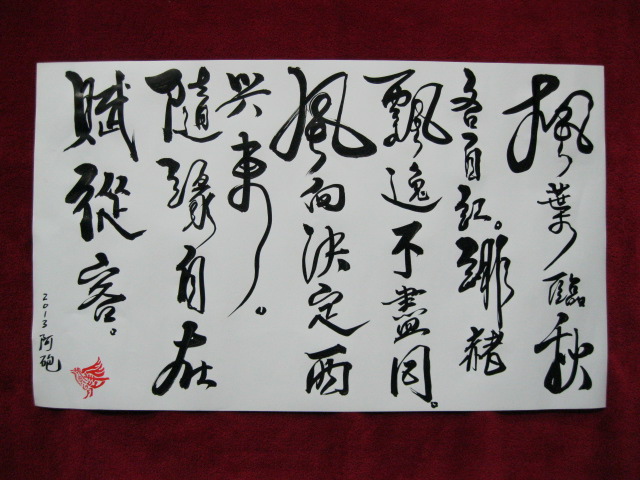 楓葉臨秋
各自紅。緋赭
飄逸不盡同。
風向決定西
與東。
隨緣自在
賦從容。
2013 阿砲